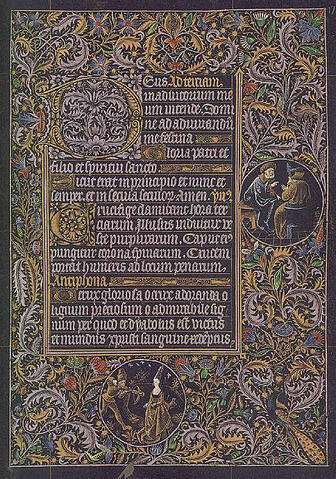 Deus Ad terciam
in adiutorium me
um intende. Domi
ne ad adiuvandū
me festina
Gloria patri et
filio et spiritui sancto
Sicut erat in principio et nunc et
semper. et in secula seculor. Amen. ymꝰ
Crucifige clamitant hora ter
ciarum Illusus induitur ve
ste purpurarum. Caput eiꝰ
pungitur corona spinarum. Crucem
portat humeris ad locum penarum.
Antiphona
O crux gloriosa o crux adoranda o
lignum preciosum o admirabile sig
num per quod et dyabolus est victus
et mundus xpristi sanguine redemptus.